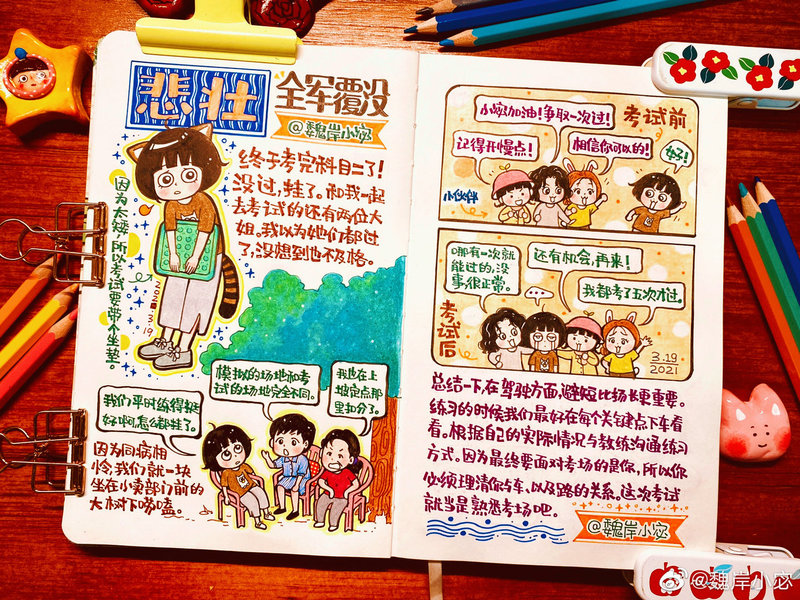 悲壮
全军覆没
@魏岸小宓
终于考完科目二了!
没过,蛙了。和我一起
去考试的还有两位大
姐,我以为她们都过
了,没想到也不及格。
因为太矮,所以考试要带个坐垫。
2021
3.19
我们平时练得挺
好啊,怎么都蛙了。
模拟的场地和考
试的场地完全不同。
我也在上
坡定点那
里扣分了。
因为同病相
怜,我们就一块
坐在小卖部门前的
大树下唠嗑。
考试前
小宓加油!争取一次过!
记得开慢点!
相信你可以的!
好!
小伙伴
考试后
哪有一次就
能过的,没
事,很正常。
还有机会,再来!
我都考了五次才过。
3.19
2021
总结一下,在驾驶方面,避短比扬长更重要。
练习的时候我们最好在每个关键点下车看
看。根据自己的实际情况与教练沟通练习
方式。因为最终要面对考场的是你,所以你
必须理清你与车、以及路的关系。这次考试
就当是熟悉考场吧。
@魏岸小宓
@魏岸小宓